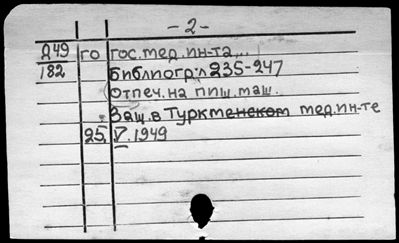 - 2 -
Д49 го гос. мед. ин-та...
182 Библиогр: л 235-247
Отпеч. на пиш. маш.
Защ. в Туркменском мед. ин-те
25. V. 1949